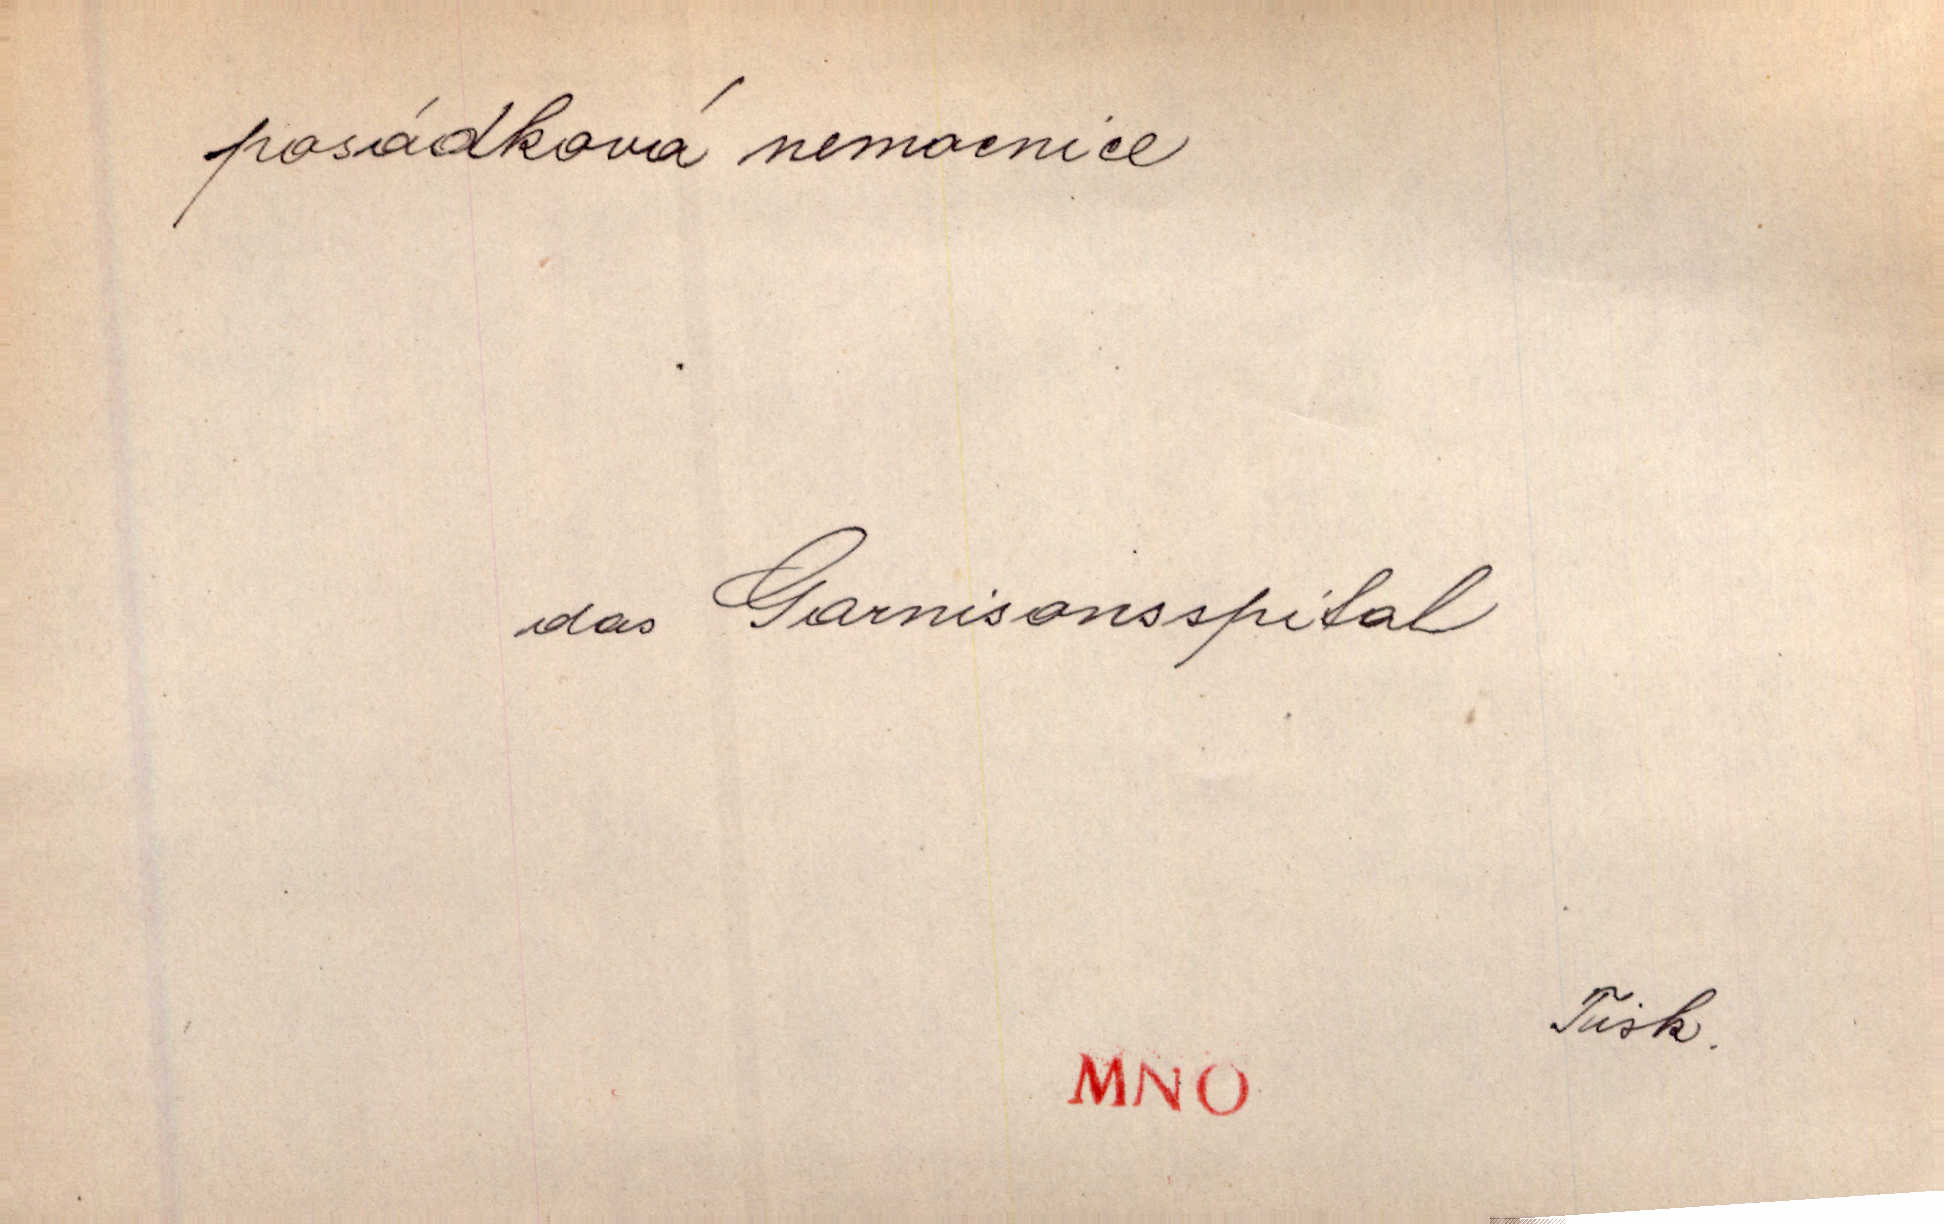 posádková nemocnice
das Garnisonsspital
Tisk.
MNO